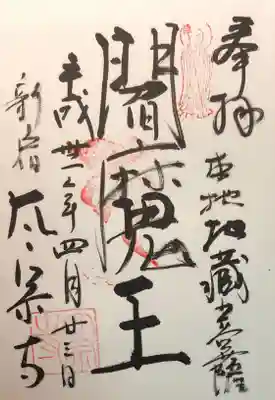 奉拝
本地地蔵尊菩薩
閻魔王
平成卅一年四月廿三日
新宿 太宗寺